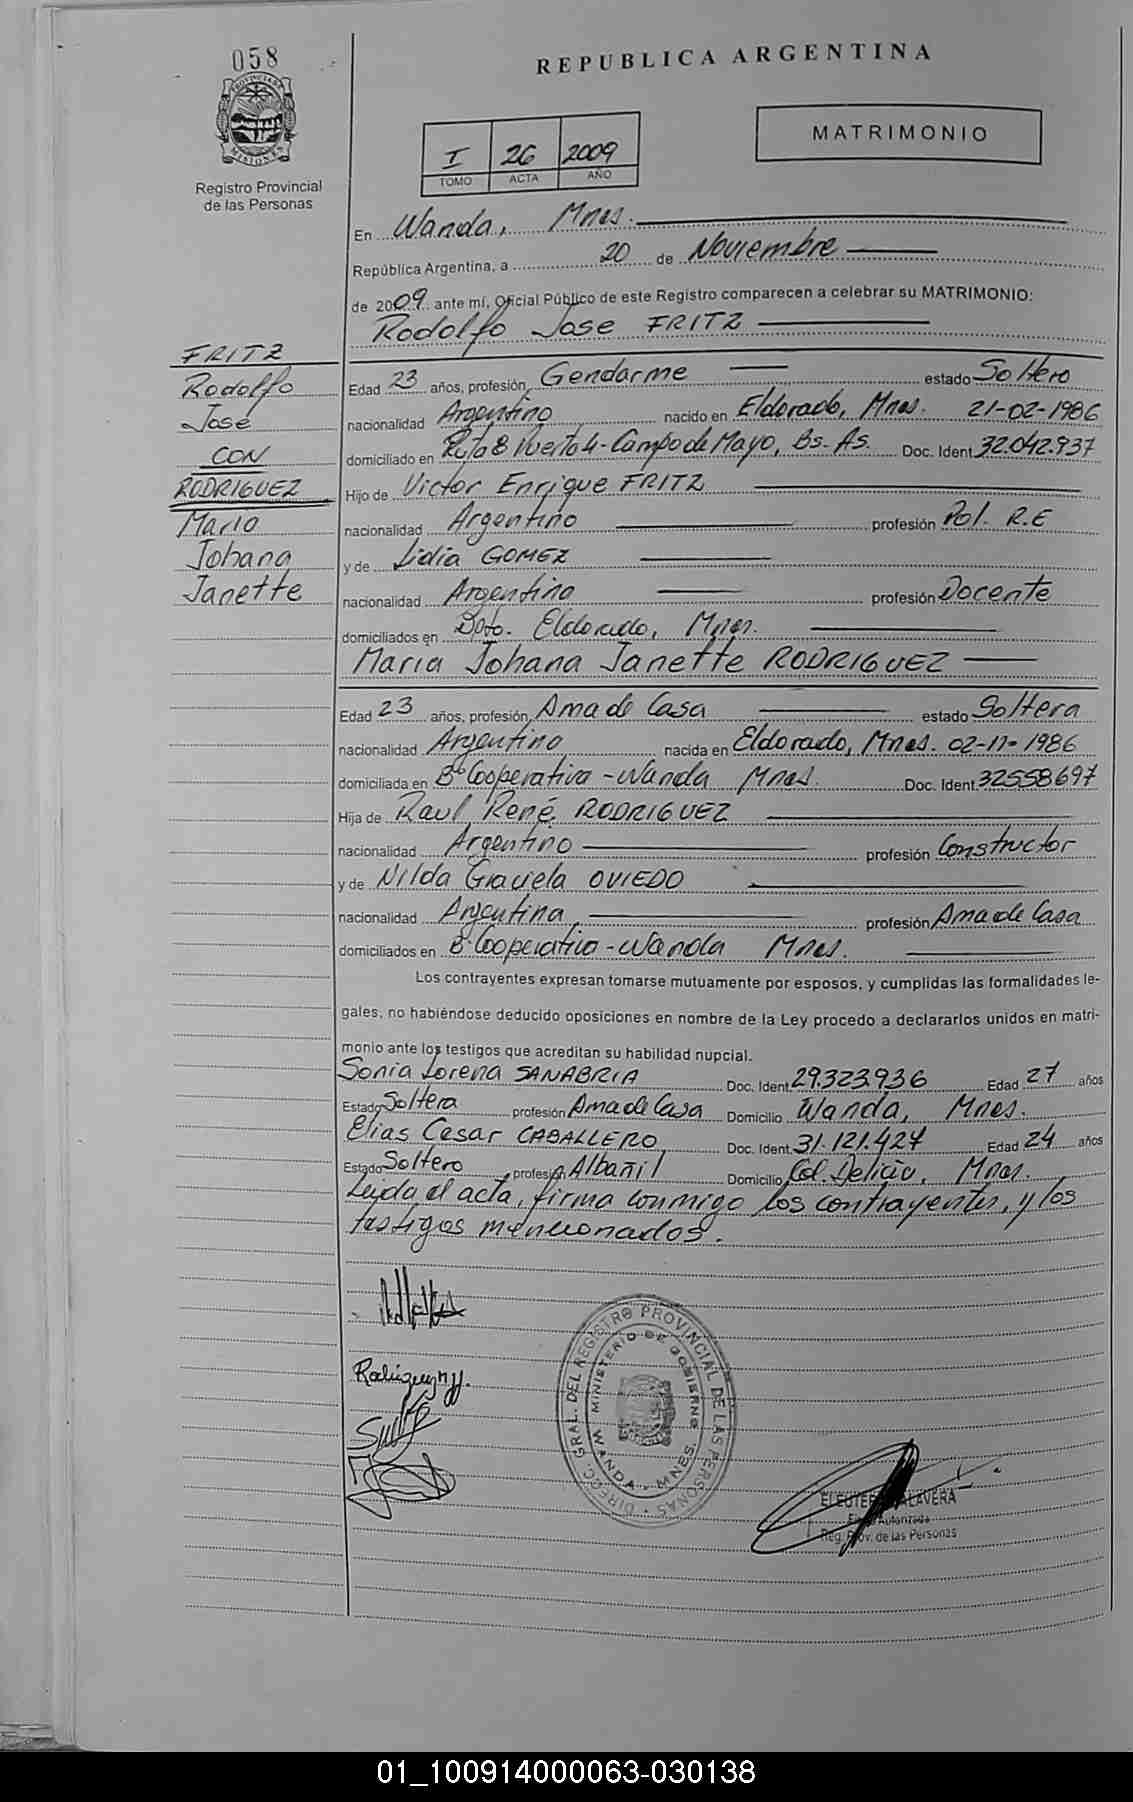 058
REPUBLICA ARGENTINA
PROVINCIA DE MISIONES
Registro Provincial
de las Personas
MATRIMONIO
I 26 2009
TOMO ACTA AÑO
En Wanda, Mnes.
República Argentina, a 20 de Noviembre
de 2009 ante mí, Oficial Público de este Registro comparecen a celebrar su MATRIMONIO:
Rodolfo Jose FRITZ
FRITZ
Rodolfo
Jose
CON
RODRIGUEZ
Maria
Johana
Janette
Edad 23 años, profesión Gendarme estado Soltero
nacionalidad Argentino nacido en Eldorado, Mnes. 21-02-1986
domiciliado en Ruta 8 Puerta 4-Campo de Mayo, Bs-As. Doc. Ident. 32.042.937
Hijo de Victor Enrique FRITZ
nacionalidad Argentino profesión Pol. R.E
y de Lidia GOMEZ
nacionalidad Argentina profesión Docente
domiciliados en Dpto. Eldorado, Mnes.
Maria Johana Janette RODRIGUEZ
Edad 23 años, profesión Ama de Casa estado Soltera
nacionalidad Argentina nacida en Eldorado, Mnes. 02-11-1986
domiciliada en Bº Cooperativa-Wanda Mnes. Doc. Ident. 32558697
Hija de Raul René RODRIGUEZ
nacionalidad Argentino profesión Constructor
y de Nilda Graciela OVIEDO
nacionalidad Argentina profesión Ama de Casa
domiciliados en Bº Cooperativa-Wanda Mnes.
Los contrayentes expresan tomarse mutuamente por esposos, y cumplidas las formalidades le-
gales, no habiéndose deducido oposiciones en nombre de la Ley procedo a declararlos unidos en matri-
monio ante los testigos que acreditan su habilidad nupcial.
Sonia Lorena SANABRIA Doc. Ident. 29.323.936 Edad 27 años
Estado Soltera profesión Ama de Casa Domicilio Wanda, Mnes.
Elias Cesar CABALLERO Doc. Ident. 31.121.427 Edad 24 años
Estado Soltero profesión Albañil Domicilio Col. Delicia, Mnes.
Leida el acta, firma conmigo los contrayentes, y los
testigos mencionados.
DIRECC. GRAL. DEL REGISTRO PROVINCIAL DE LAS PERSONAS
MINISTERIO DE GOBIERNO
WANDA - MNES.
Rodriguez M J.
TALAVERA
Reg. Prov. de las Personas
01_100914000063-030138